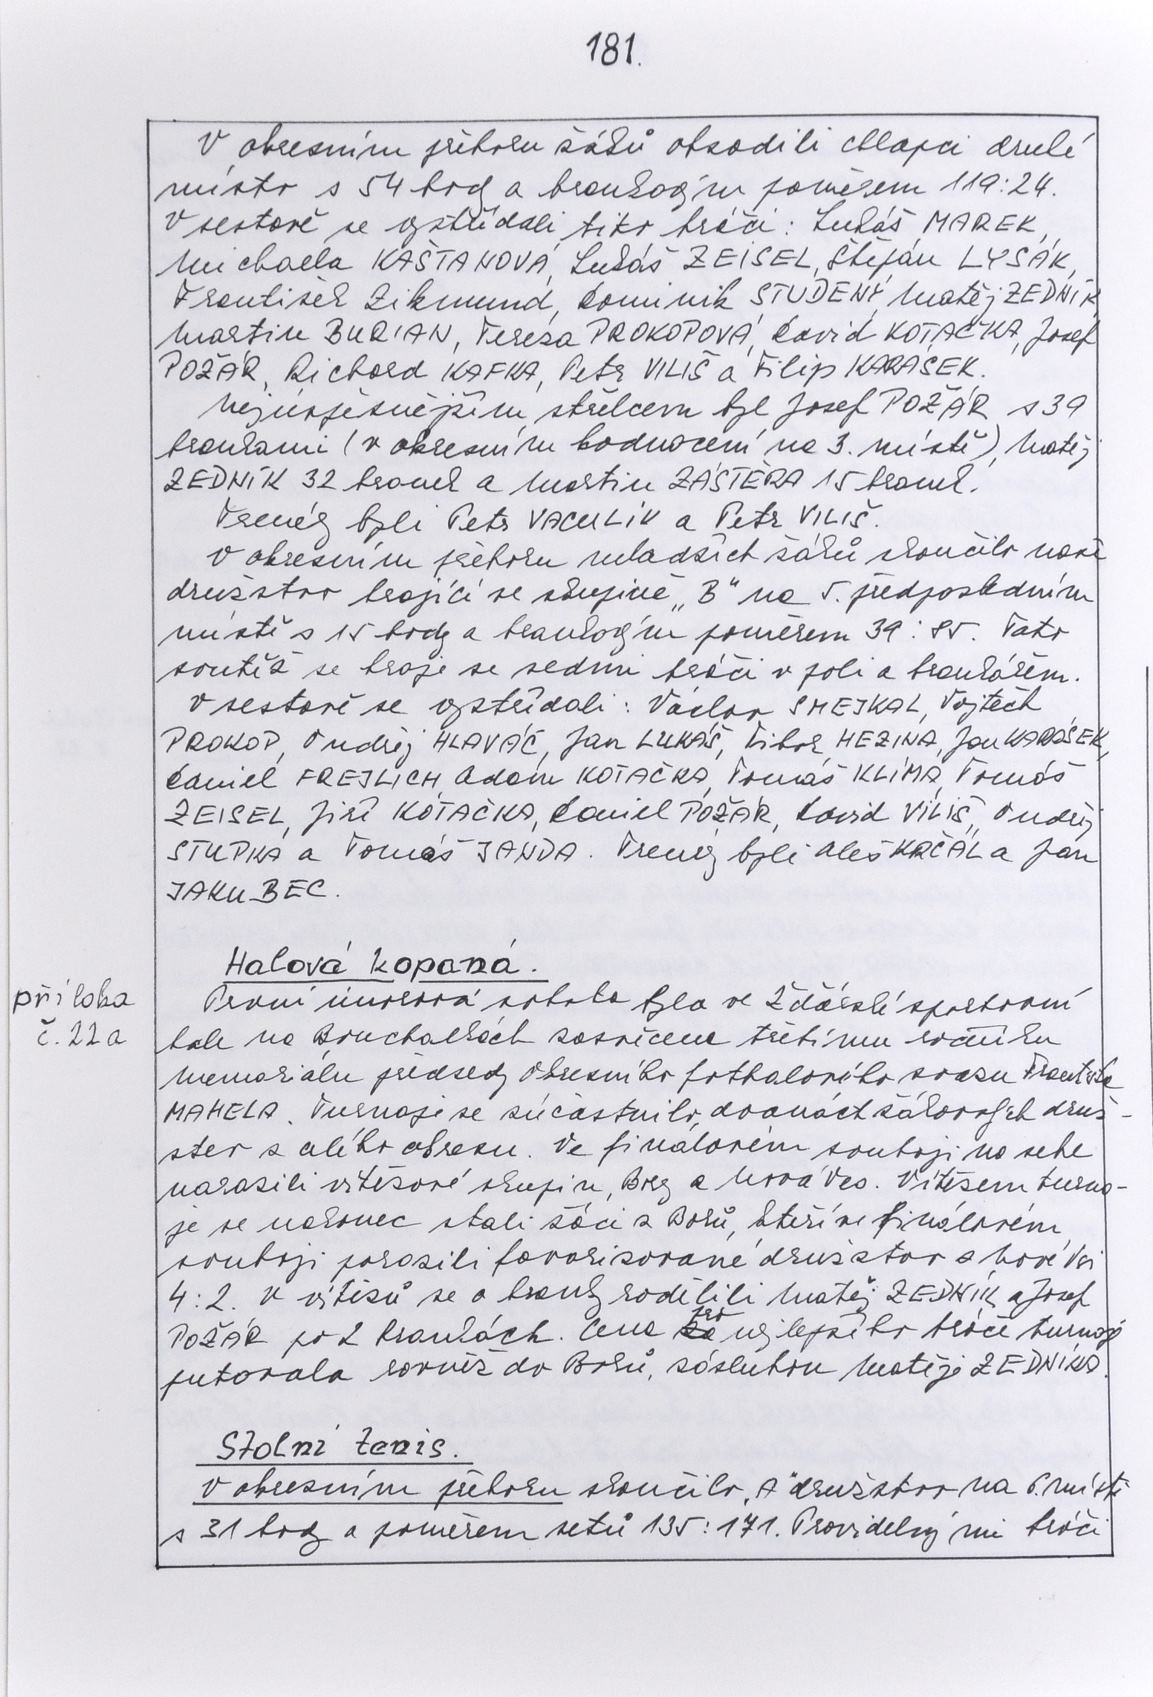 181.
V okresním přeboru žáků obsadili chlapci druhé
místo s 54 body a brankovým poměrem 119:24.
V sestavě se vystřídali tito hráči: Lukáš MAREK,
Michaela KAŠTANOVÁ, Lukáš ZEISEL, Štěpán LYSÁK,
František Zikmund, Dominik STUDENÝ, Matěj ZEDNÍK,
Martin BURIAN, Tereza PROKOPOVÁ, David KOTAČKA, Josef
POŽÁR, Richard KAFKA, Petr VILIŠ a Filip KARASEK.
Nejúspěšnějším střelcem byl Josef POŽÁR s 39
brankami (v okresním hodnocení na 3. místě), Matěj
ZEDNÍK 32 branek a Martin ZÁŠTĚRA 15 branek.
Trenéry byli Petr VACULÍK a Petr VILIŠ.
V okresním přeboru mladších žáků skončilo naše
družstvo hrající ve skupině „B" na 5. předposledním
místě s 15 body a brankovým poměrem 39:85. Tato
soutěž se hraje se sedmi hráči v poli a brankářem.
V sestavě se vystřídali: Václav SMEJKAL, Vojtěch
PROKOP, Ondřej HLAVÁČ, Jan LUKÁŠ, Libor MEZINA, Jan KARÁSEK,
Daniel FREJLICH, Adam KOTAČKA, Tomáš KLÍMA, Tomáš
ZEISEL, Jiří KOTAČKA, Daniel POŽÁR, David VILIŠ, Ondřej
STUPKA a Tomáš JANDA. Trenéry byli Aleš KRČÁL a Jan
JAKUBEC.
Halová kopaná.
příloha
č. 22a
První únorová sobota byla ve Žďárské sportovní
hale na Bouchalkách zasvěcena třetímu ročníku
memoriálu předsedy Okresního fotbalového svazu Františka
MAHELA. Turnaje se zúčastnilo dvanáct žákovských druž-
stev z celého okresu. Ve finálovém souboji na sebe
narazili vítězové skupin, Bory a Nová Ves. Vítězem turna-
je se nakonec stali žáci z Borů, kteří ve finálovém
souboji porazili favorizované družstvo z Nové Vsi
4:2. U vítězů se o branky rozdělili Matěj ZEDNÍK a Josef
POŽÁR po 2 brankách. Cena pro nejlepšího hráče turnaje
putovala rovněž do Borů, zásluhou Matěje ZEDNÍKA.
Stolní tenis.
V okresním přeboru skončilo „A" družstvo na 6. místě
s 31 body a poměrem setů 135:171. Pravidelnými hráči